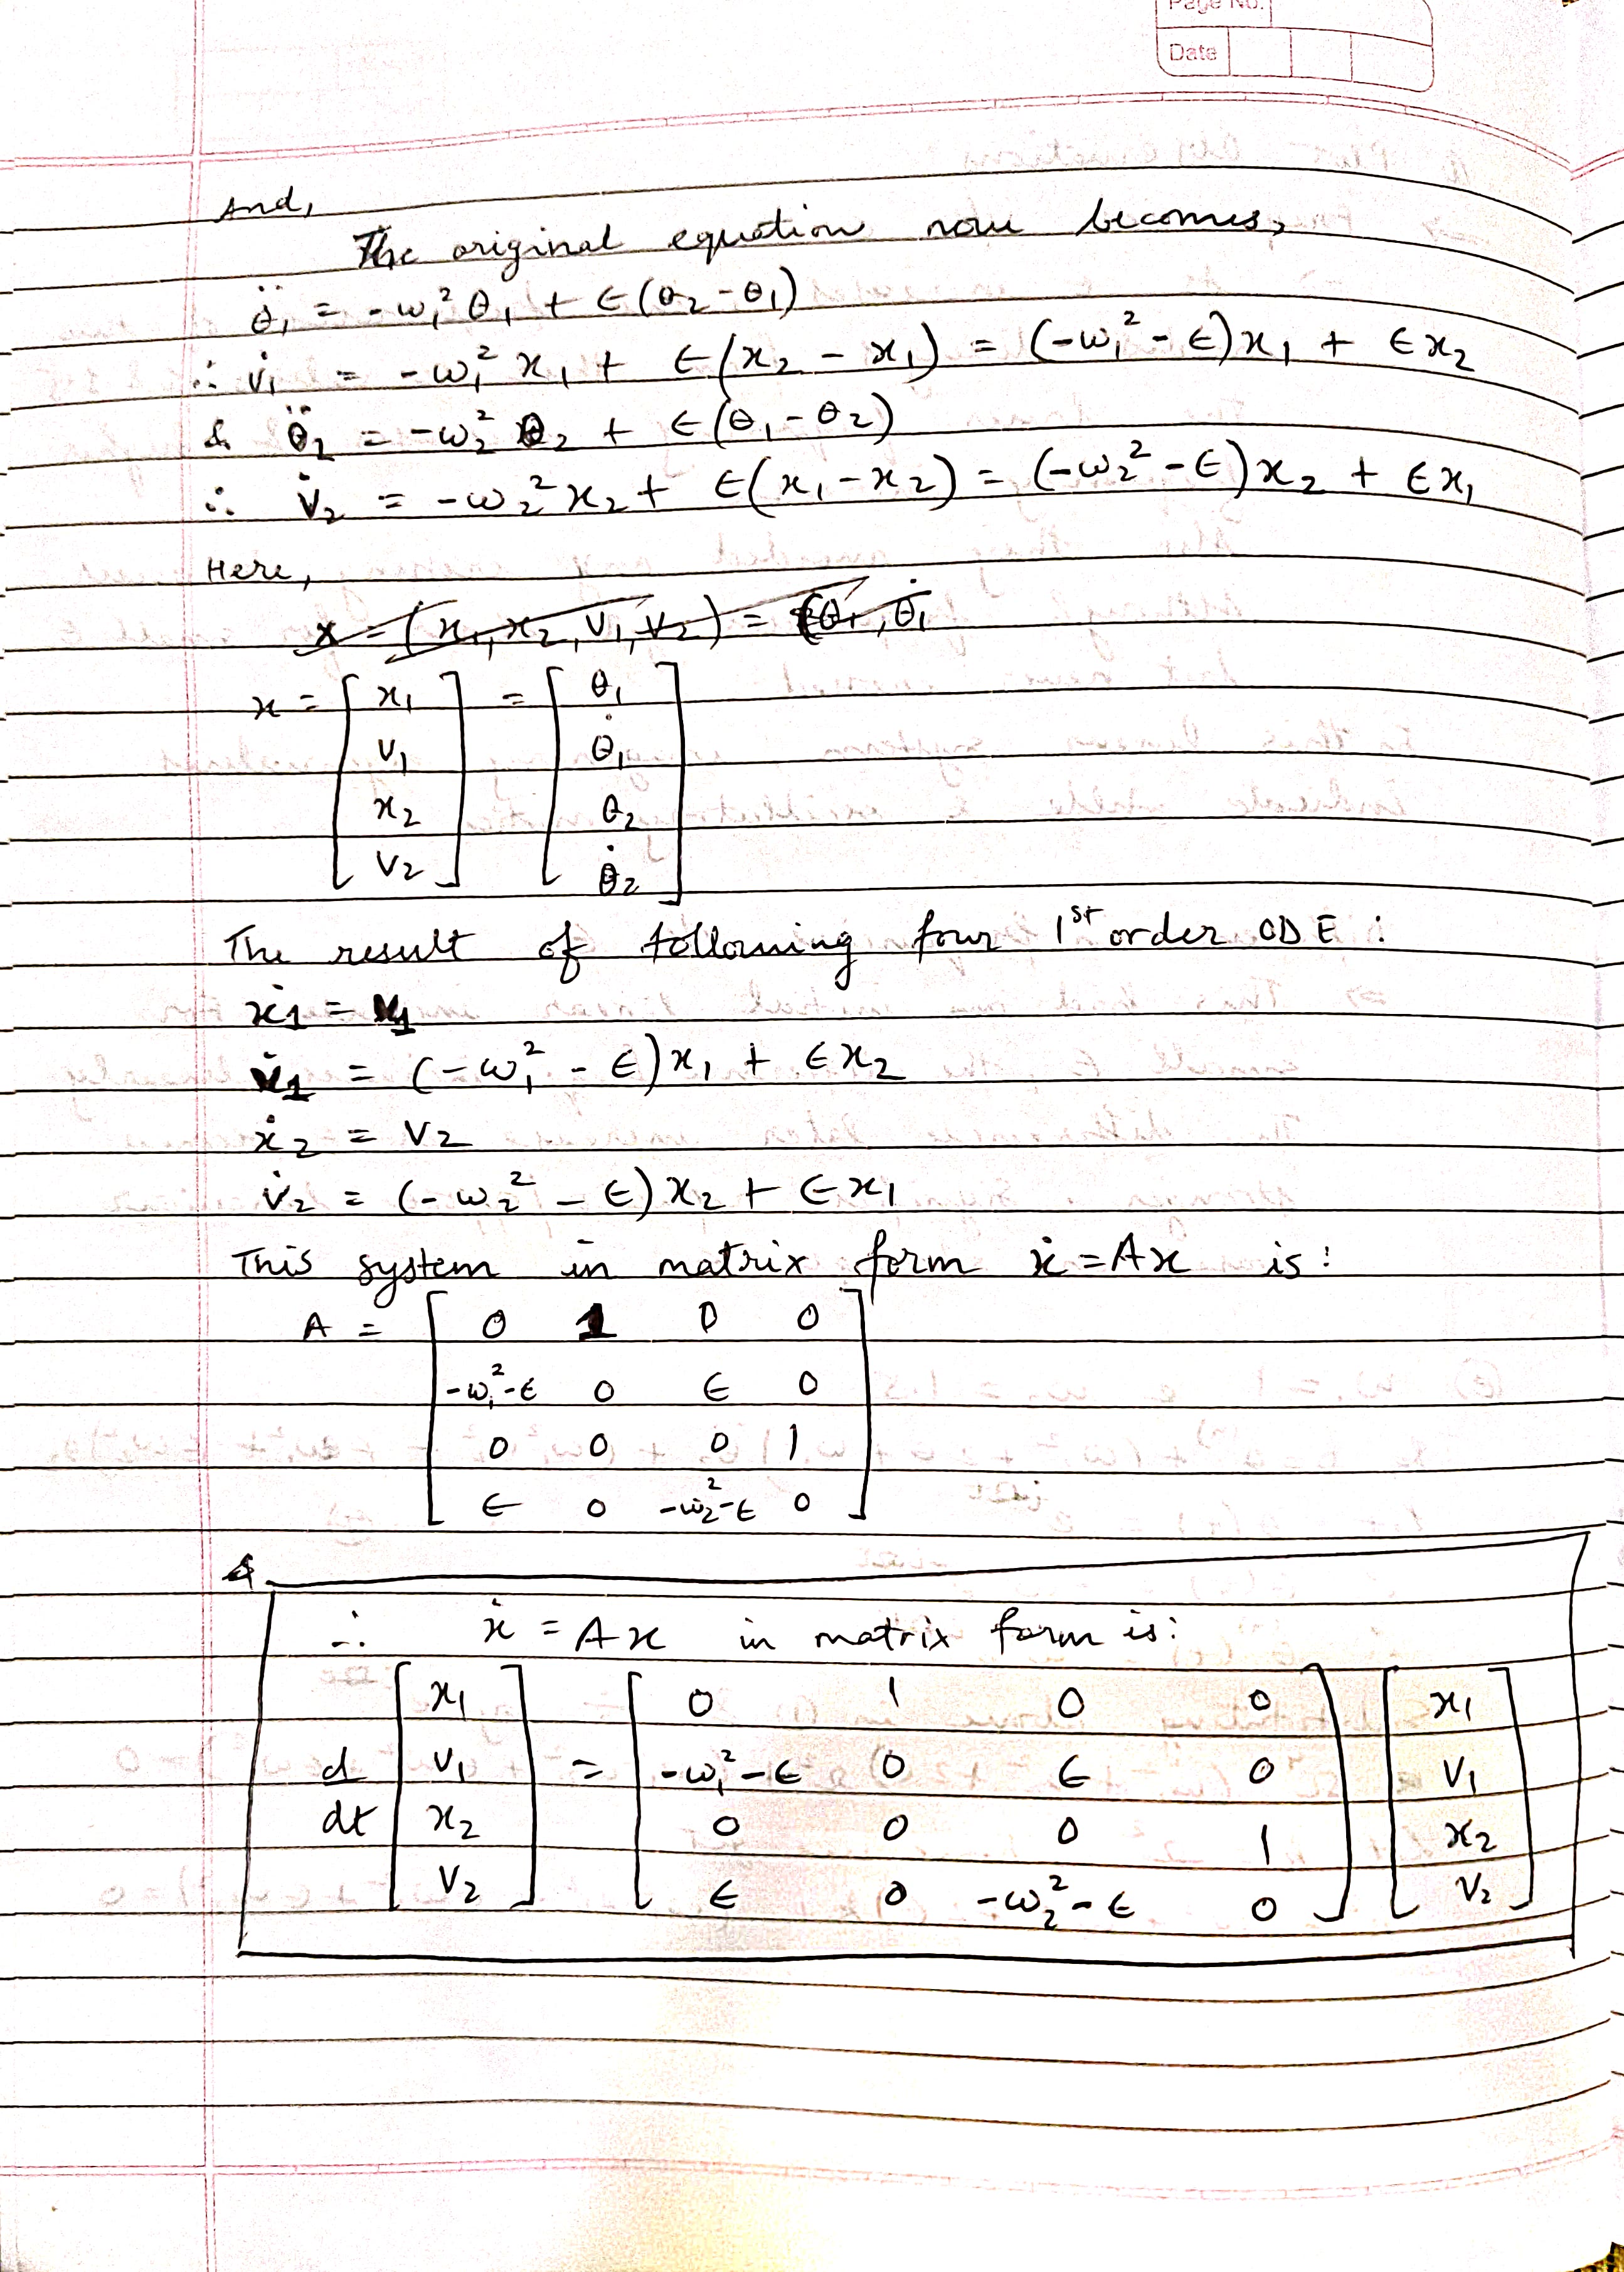 Page No.
Date
And,
The original equation now becomes,
θ̈₁ = -ω₁² θ₁ + ϵ(θ₂ - θ₁)
∴ v̇₁ = -ω₁² x₁ + ϵ(x₂ - x₁) = (-ω₁² - ϵ)x₁ + ϵx₂
& θ̈₂ = -ω₂² θ₂ + ϵ(θ₁ - θ₂)
∴ v̇₂ = -ω₂² x₂ + ϵ(x₁ - x₂) = (-ω₂² - ϵ)x₂ + ϵx₁
Here,
x = (x₁, x₂, v₁, v₂) = (θ₁, θ̇₁
x = [ x₁ ] = [ θ₁ ]
[ v₁ ] [ θ̇₁ ]
[ x₂ ] [ θ₂ ]
[ v₂ ] [ θ̇₂ ]
The result of following four 1st order ODE :
ẋ1 = v1
v̇1 = (-ω₁² - ϵ)x₁ + ϵx₂
ẋ₂ = v₂
v̇₂ = (-ω₂² - ϵ)x₂ + ϵx₁
This system in matrix form ẋ = Ax is :
A = [ 0 1 0 0 ]
[ -ω₁²-ϵ 0 ϵ 0 ]
[ 0 0 0 1 ]
[ ϵ 0 -ω₂²-ϵ 0 ]
∴ ẋ = Ax in matrix form is :
[ x₁ ] [ 0 1 0 0 ] [ x₁ ]
d [ v₁ ] = [ -ω₁²-ϵ 0 ϵ 0 ] [ v₁ ]
dt [ x₂ ] [ 0 0 0 1 ] [ x₂ ]
[ v₂ ] [ ϵ 0 -ω₂²-ϵ 0 ] [ v₂ ]